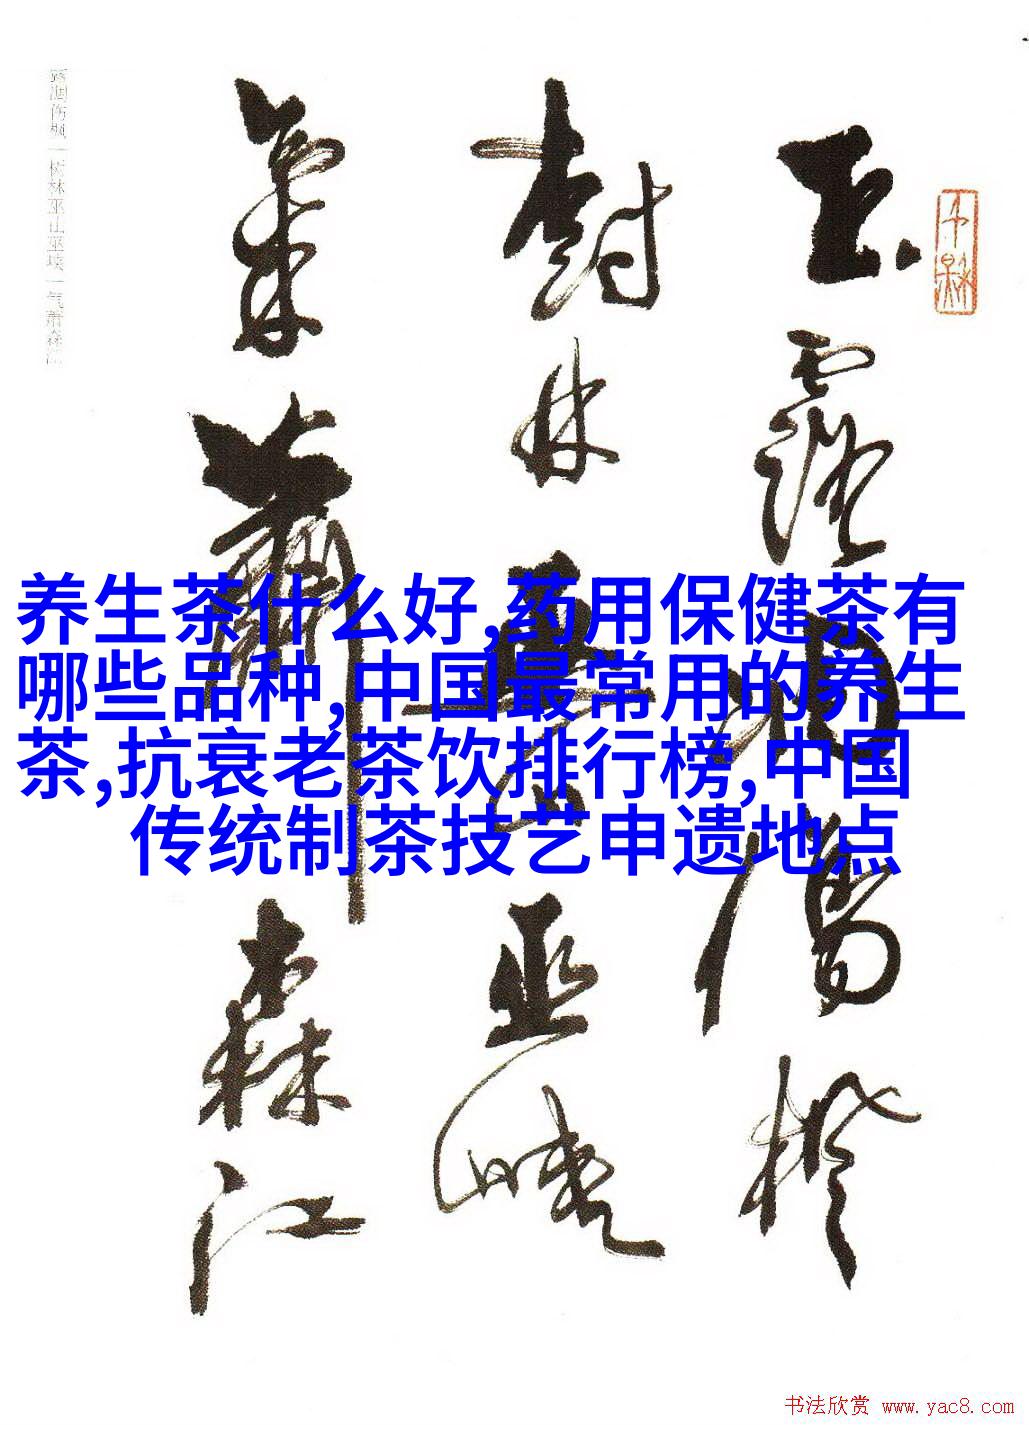 玉露凋傷楓
樹林巫山巫峽
氣蕭森江
养生茶什么好,药用保健茶有
哪些品种,中国最常用的养生
茶,抗衰老茶饮排行榜,中国
传统制茶技艺申遗地点
书法欣赏 www.yac8.com